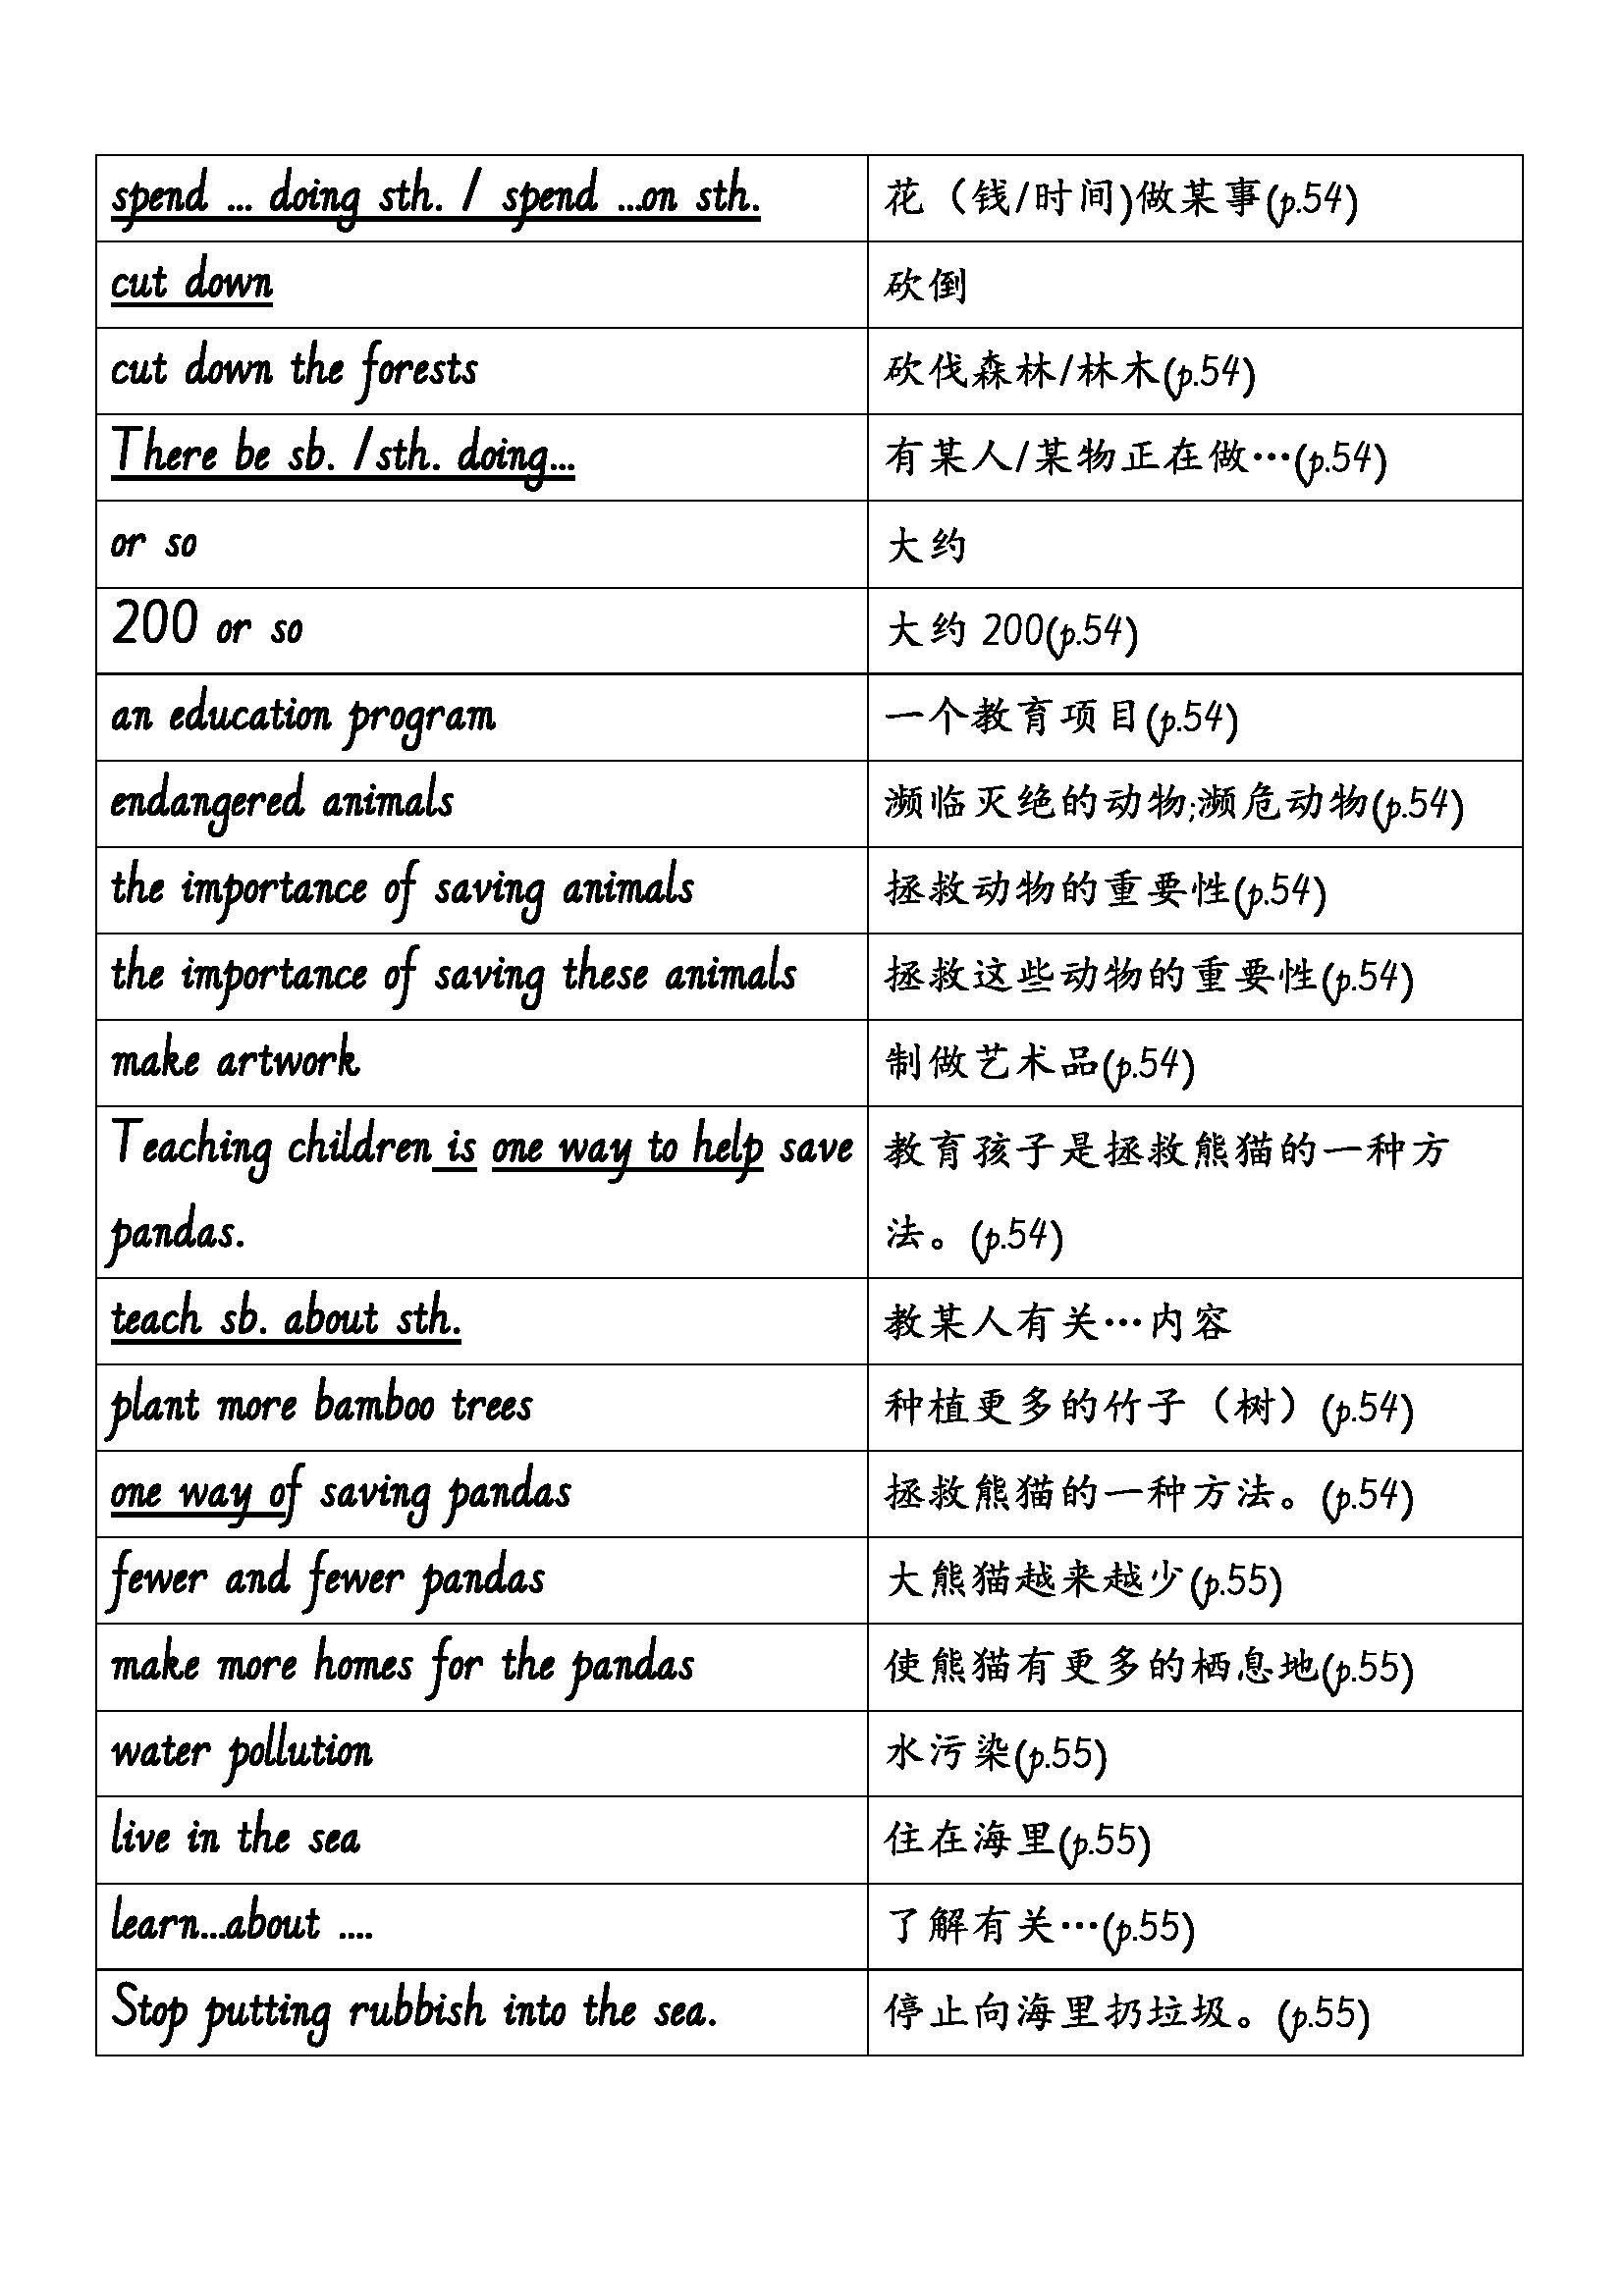 spend ... doing sth. / spend ...on sth. 花（钱/时间)做某事(p.54)
cut down 砍倒
cut down the forests 砍伐森林/林木(p.54)
There be sb. /sth. doing... 有某人/某物正在做…(p.54)
or so 大约
200 or so 大约 200(p.54)
an education program 一个教育项目(p.54)
endangered animals 濒临灭绝的动物;濒危动物(p.54)
the importance of saving animals 拯救动物的重要性(p.54)
the importance of saving these animals 拯救这些动物的重要性(p.54)
make artwork 制做艺术品(p.54)
Teaching children is one way to help save
pandas.
教育孩子是拯救熊猫的一种方
法。(p.54)
teach sb. about sth. 教某人有关…内容
plant more bamboo trees 种植更多的竹子（树）(p.54)
one way of saving pandas 拯救熊猫的一种方法。(p.54)
fewer and fewer pandas 大熊猫越来越少(p.55)
make more homes for the pandas 使熊猫有更多的栖息地(p.55)
water pollution 水污染(p.55)
live in the sea 住在海里(p.55)
learn...about .... 了解有关…(p.55)
Stop putting rubbish into the sea. 停止向海里扔垃圾。(p.55)